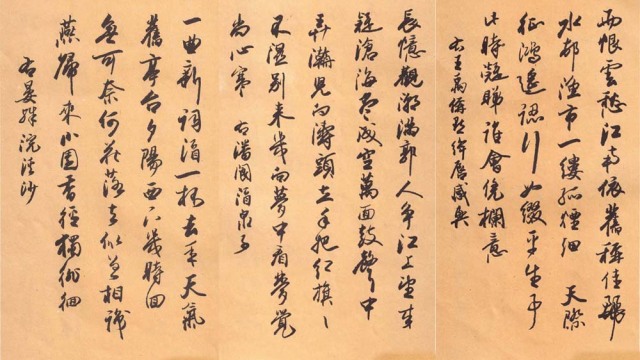 雨恨雲愁江南依舊稱佳麗
水邨漁市一縷孤煙細 天際
征鴻遙認行如綴平生事
此時凝睇誰會凭欄意
右王禹偁點絳唇感興
長憶觀潮滿郭人爭江上望來
疑滄海盡成空萬面鼓聲中
弄潮兒向濤頭立手把紅旗〻
不濕別來幾向夢中看夢覺
尚心寒 右潘閬酒泉子
一曲新詞酒一杯去年天氣
舊亭台夕陽西下幾時回
無可奈何花落去似曾相識
燕歸來小園香徑獨徘徊
右晏殊浣溪沙